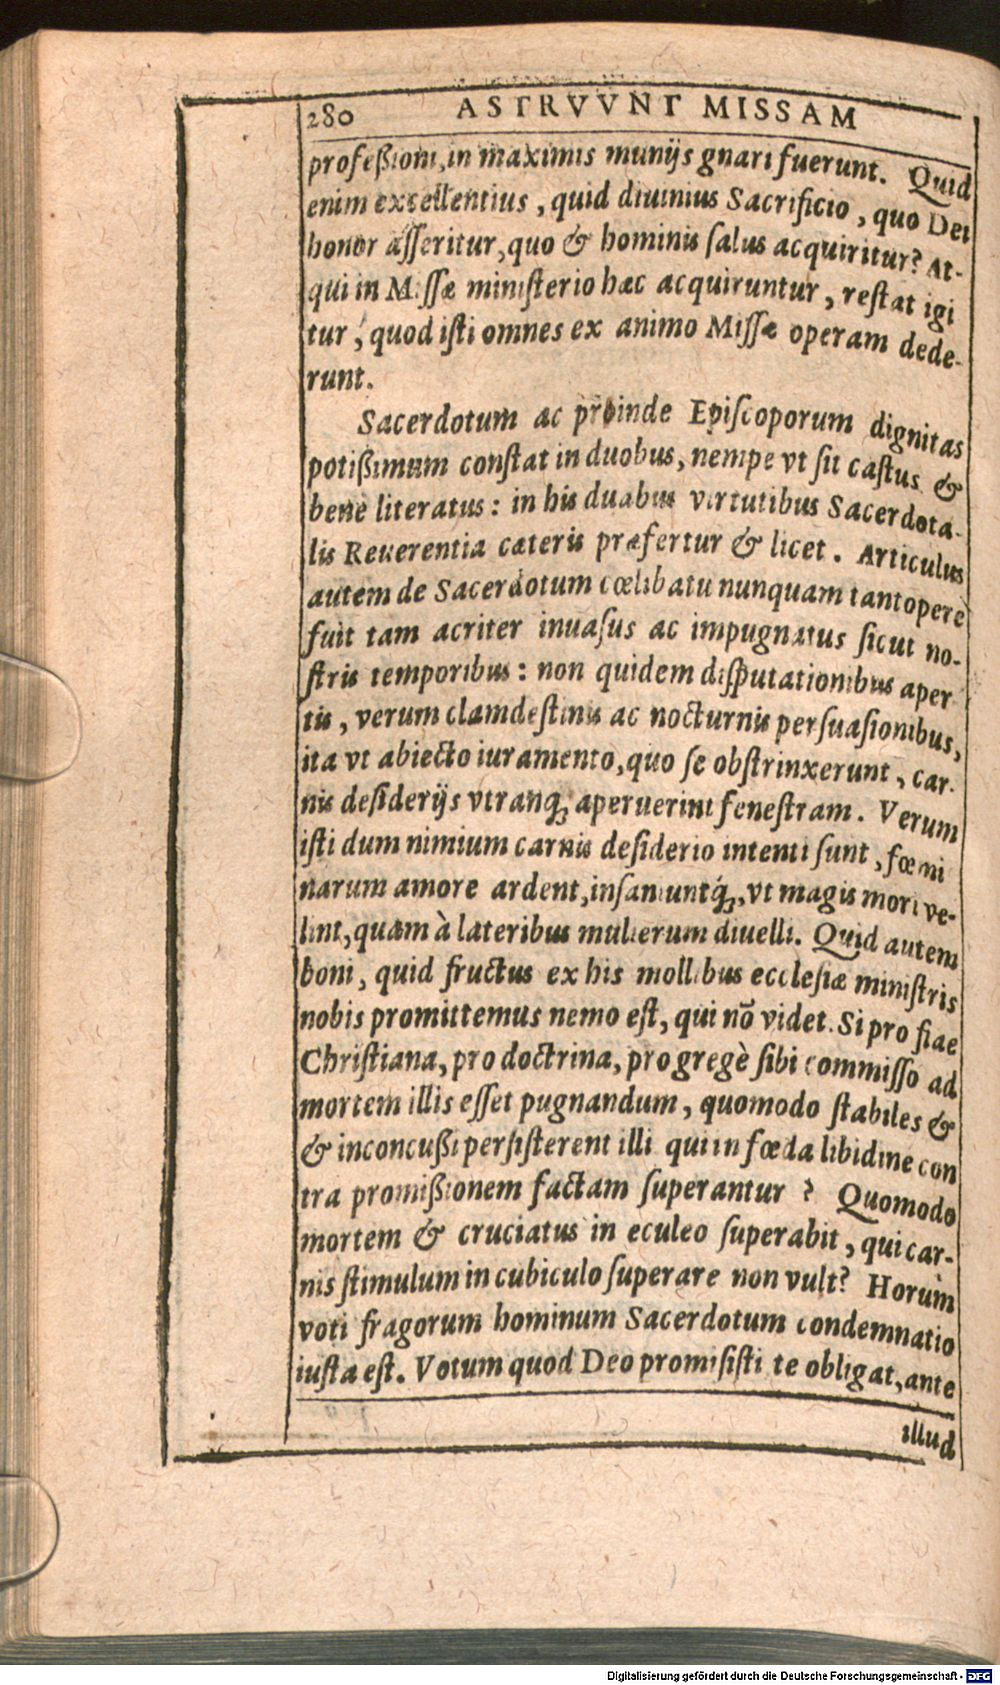 280 ASTRVVNT MISSAM
profeßioni, in maximis munijs gnari fuerunt. Quid
enim excellentius, quid diuinius Sacrificio, quo Dei
honor asseritur, quo & hominis salus acquiritur? At-
qui in Missæ ministerio hæc acquiruntur, restat igi
tur, quod isti omnes ex animo Missæ operam dede-
runt.
Sacerdotum ac proinde Episcoporum dignitas
potißimum constat in duobus, nempe vt sit castus &
bene literatus: in his duabus virtutibus Sacerdota-
lis Reuerentia cæteris præfertur & licet. Articulus
autem de Sacerdotum cœlibatu nunquam tantoperè
fuit tam acriter inuasus ac impugnatus sicut no-
stris temporibus: non quidem disputationibus aper
tis, verum clamdestinis ac nocturnis persuasionibus,
ita vt abiecto iuramento, quo se obstrinxerunt, car-
nis desiderijs vtranq; aperuerint fenestram. Verum
isti dum nimium carnis desiderio intenti sunt, fœmi
narum amore ardent, insaniuntq́;, vt magis mori ve-
lint, quam à lateribus mulierum diuelli. Quid autem
boni, quid fructus ex his mollibus ecclesiæ ministris
nobis promittemus nemo est, qui nō videt. Si pro fiae
Christiana, pro doctrina, pro gregè sibi commisso ad
mortem illis esset pugnandum, quomodo stabiles &
& inconcußi persisterent illi qui in fœda libidine con
tra promißionem factam superantur? Quomodo
mortem & cruciatus in eculeo superabit, qui car-
nis stimulum in cubiculo superare non vult? Horum
voti fragorum hominum Sacerdotum condemnatio
iusta est. Votum quod Deo promisisti te obligat, ante
illud
Digitalisierung gefördert durch die Deutsche Forschungsgemeinschaft - DFG